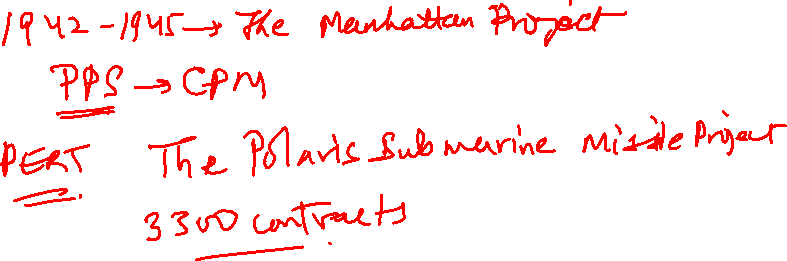 1942-1945→ The Manhattan Project
PPS → CPM
PERT The Polaris Submarine Missile Project
3300 contracts